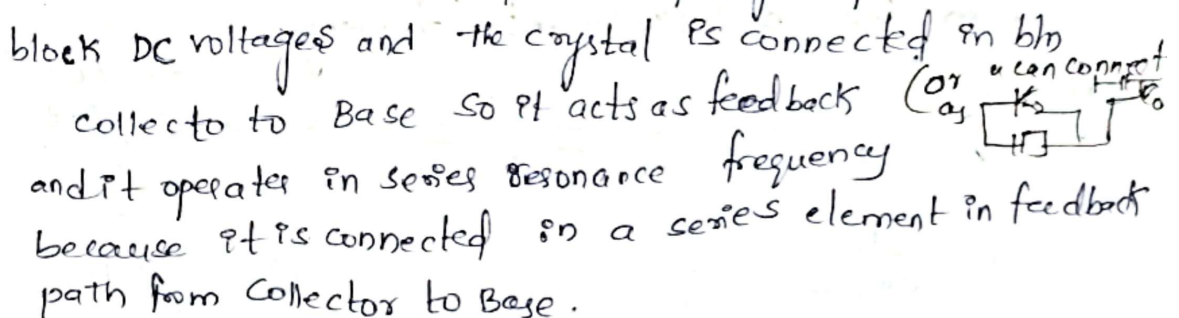 block DC voltages and the crystal is connected in b/n
collecto to Base so it acts as feedback (or u can connect
as
and it operates in series resonance frequency
because it is connected in a series element in feedback
path from Collector to Base.